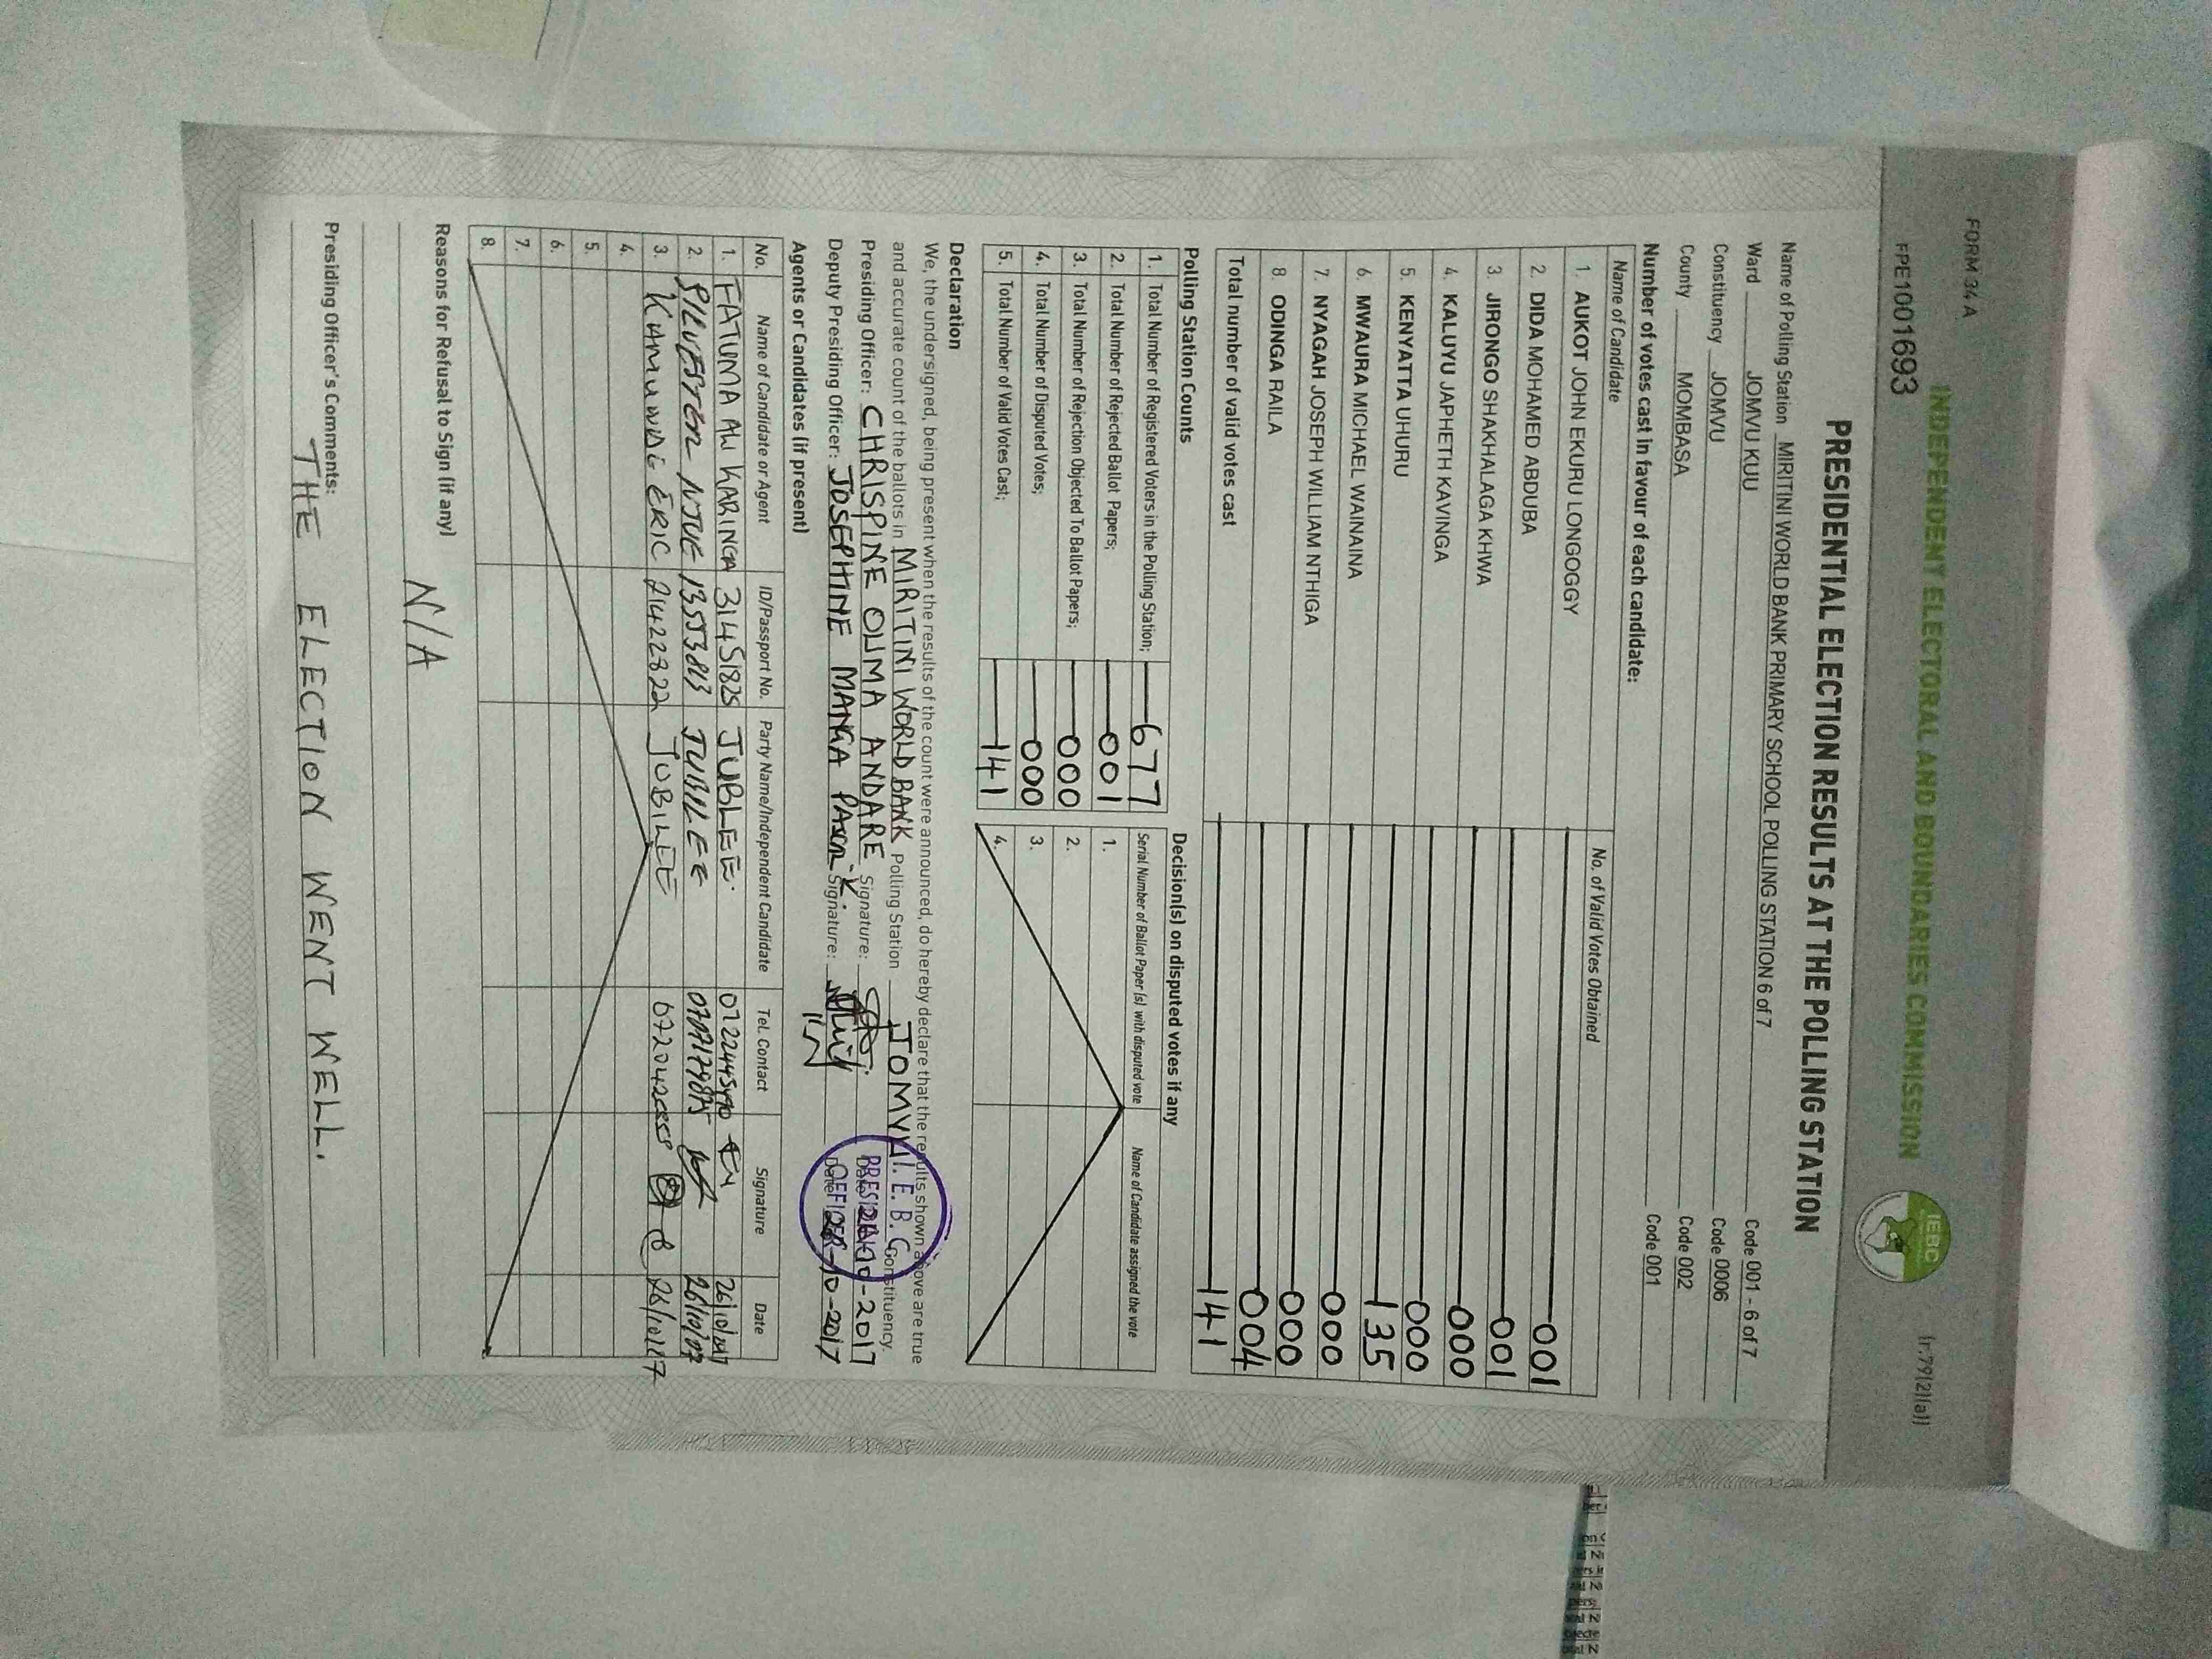 FORM 34A
INDEPENDENT ELECTORAL AND BOUNDARIES COMMISSION
IEBC
(r.79(2)(a))
FPE1001693
PRESIDENTIAL ELECTION RESULTS AT THE POLLING STATION
Name of Polling Station MIRITINI WORLD BANK PRIMARY SCHOOL POLLING STATION 6 of 7 Code 001 - 6 of 7
Ward JOMVU KUU Code 0006
Constituency JOMVU Code 002
County MOMBASA Code 001
Number of votes cast in favour of each candidate:
Name of Candidate No. of Valid Votes Obtained
1. AUKOT JOHN EKURU LONGOGGY 001
2. DIDA MOHAMED ABDUBA 001
3. JIRONGO SHAKHALAGA KHWA 000
4. KALUYU JAPHETH KAVINGA 000
5. KENYATTA UHURU 135
6. MWAURA MICHAEL WAINAINA 000
7. NYAGAH JOSEPH WILLIAM NTHIGA 000
8. ODINGA RAILA 004
Total number of valid votes cast 141
Polling Station Counts
1. Total Number of Registered Voters in the Polling Station; 677
2. Total Number of Rejected Ballot Papers; 001
3. Total Number of Rejection Objected To Ballot Papers; 000
4. Total Number of Disputed Votes; 000
5. Total Number of Valid Votes Cast; 141
Decision(s) on disputed votes if any
Serial Number of Ballot Paper (s) with disputed vote Name of Candidate assigned the vote
1.
2.
3.
4.
Declaration
We, the undersigned, being present when the results of the count were announced, do hereby declare that the results shown above are true
and accurate count of the ballots in MIRITINI WORLD BANK Polling Station JOMVU Constituency.
Presiding Officer: CHRISPINE OUMA ANDARE Signature: Date 26-10-2017
Deputy Presiding Officer: JOSEPHINE MANGA Signature: Date 26-10-2017
I. E. B. C
PRESIDING
OFFICER
Agents or Candidates (if present)
No. Name of Candidate or Agent ID/Passport No. Party Name/Independent Candidate Tel. Contact Signature Date
1. FATUMA ALI KARINGA 31451825 JUBLEE 26/10/2017
2. SILVESTER NJUE JUBILEE 26/10/17
3. KAMUNDE ERIC 21422822 JUBILEE 26/10/17
4.
5.
6.
7.
8.
Reasons for Refusal to Sign (if any)
N/A
Presiding Officer's Comments:
THE ELECTION WENT WELL.